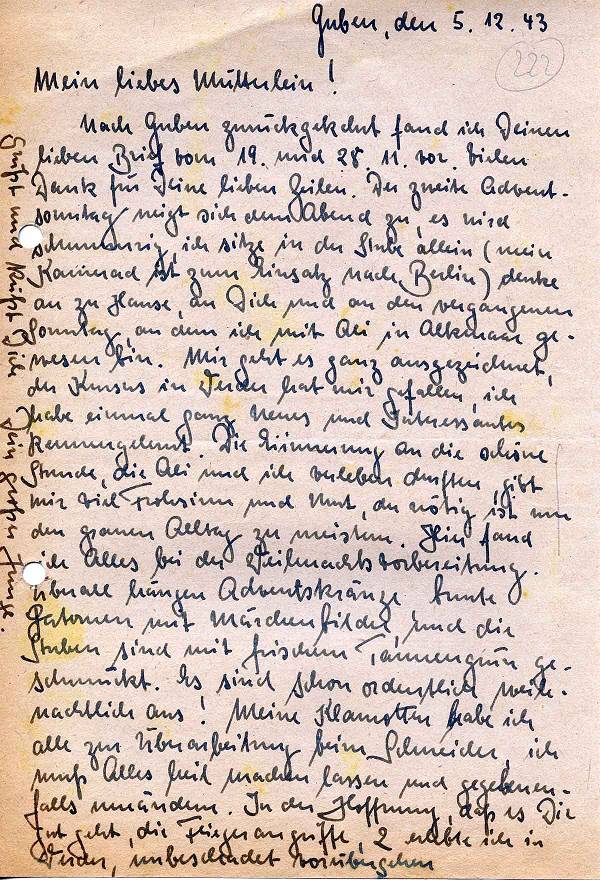 Guben, den 5. 12. 43
222
Mein liebes Mütterlein!
Nach Guben zurückgekehrt fand ich Deinen
lieben Brief vom 19. und 28. 11. vor. Vielen
Dank für Deine lieben Zeilen. Der zweite Advent-
sonntag neigt sich dem Abend zu, es wird
schummrig, ich sitze in der Stube allein (mein
Kamerad ist zum Einsatz nach Berlin) denke
an zu Hause, an Dich und an den vergangenen
Sonntag, an dem ich mit Ali in ge-
wesen bin. Mir geht es ganz ausgezeichnet,
der Kursus in hat mir gefallen, ich
habe einmal ganz Neues und Interessantes
kennengelernt. Die Erinnerung an die schöne
Stunde, die Ali und ich verleben durften, gibt
mir viel Frohsinn und Mut, der nötig ist um
den grauen Alltag zu meistern. Hier fand
ich Alles bei der Weihnachtsvorbereitung.
Überall hängen Adventskränze bunte
mit Märchenbilder, und die
Stuben sind mit frischem Tannengrün ge-
schmückt. Es sieht schon ordentlich weih-
nachtlich aus! Meine Klamotten habe ich
alle zur Überarbeitung beim Schneider, ich
muß Alles heil machen lassen und gegebenen-
falls umändern. In der Hoffnung, daß es Dir
gut geht, die Fliegerangriffe, 2 erlebte ich in
unbeschadet vorübergehen
Grüßt und küßt Dich Dein Junge.